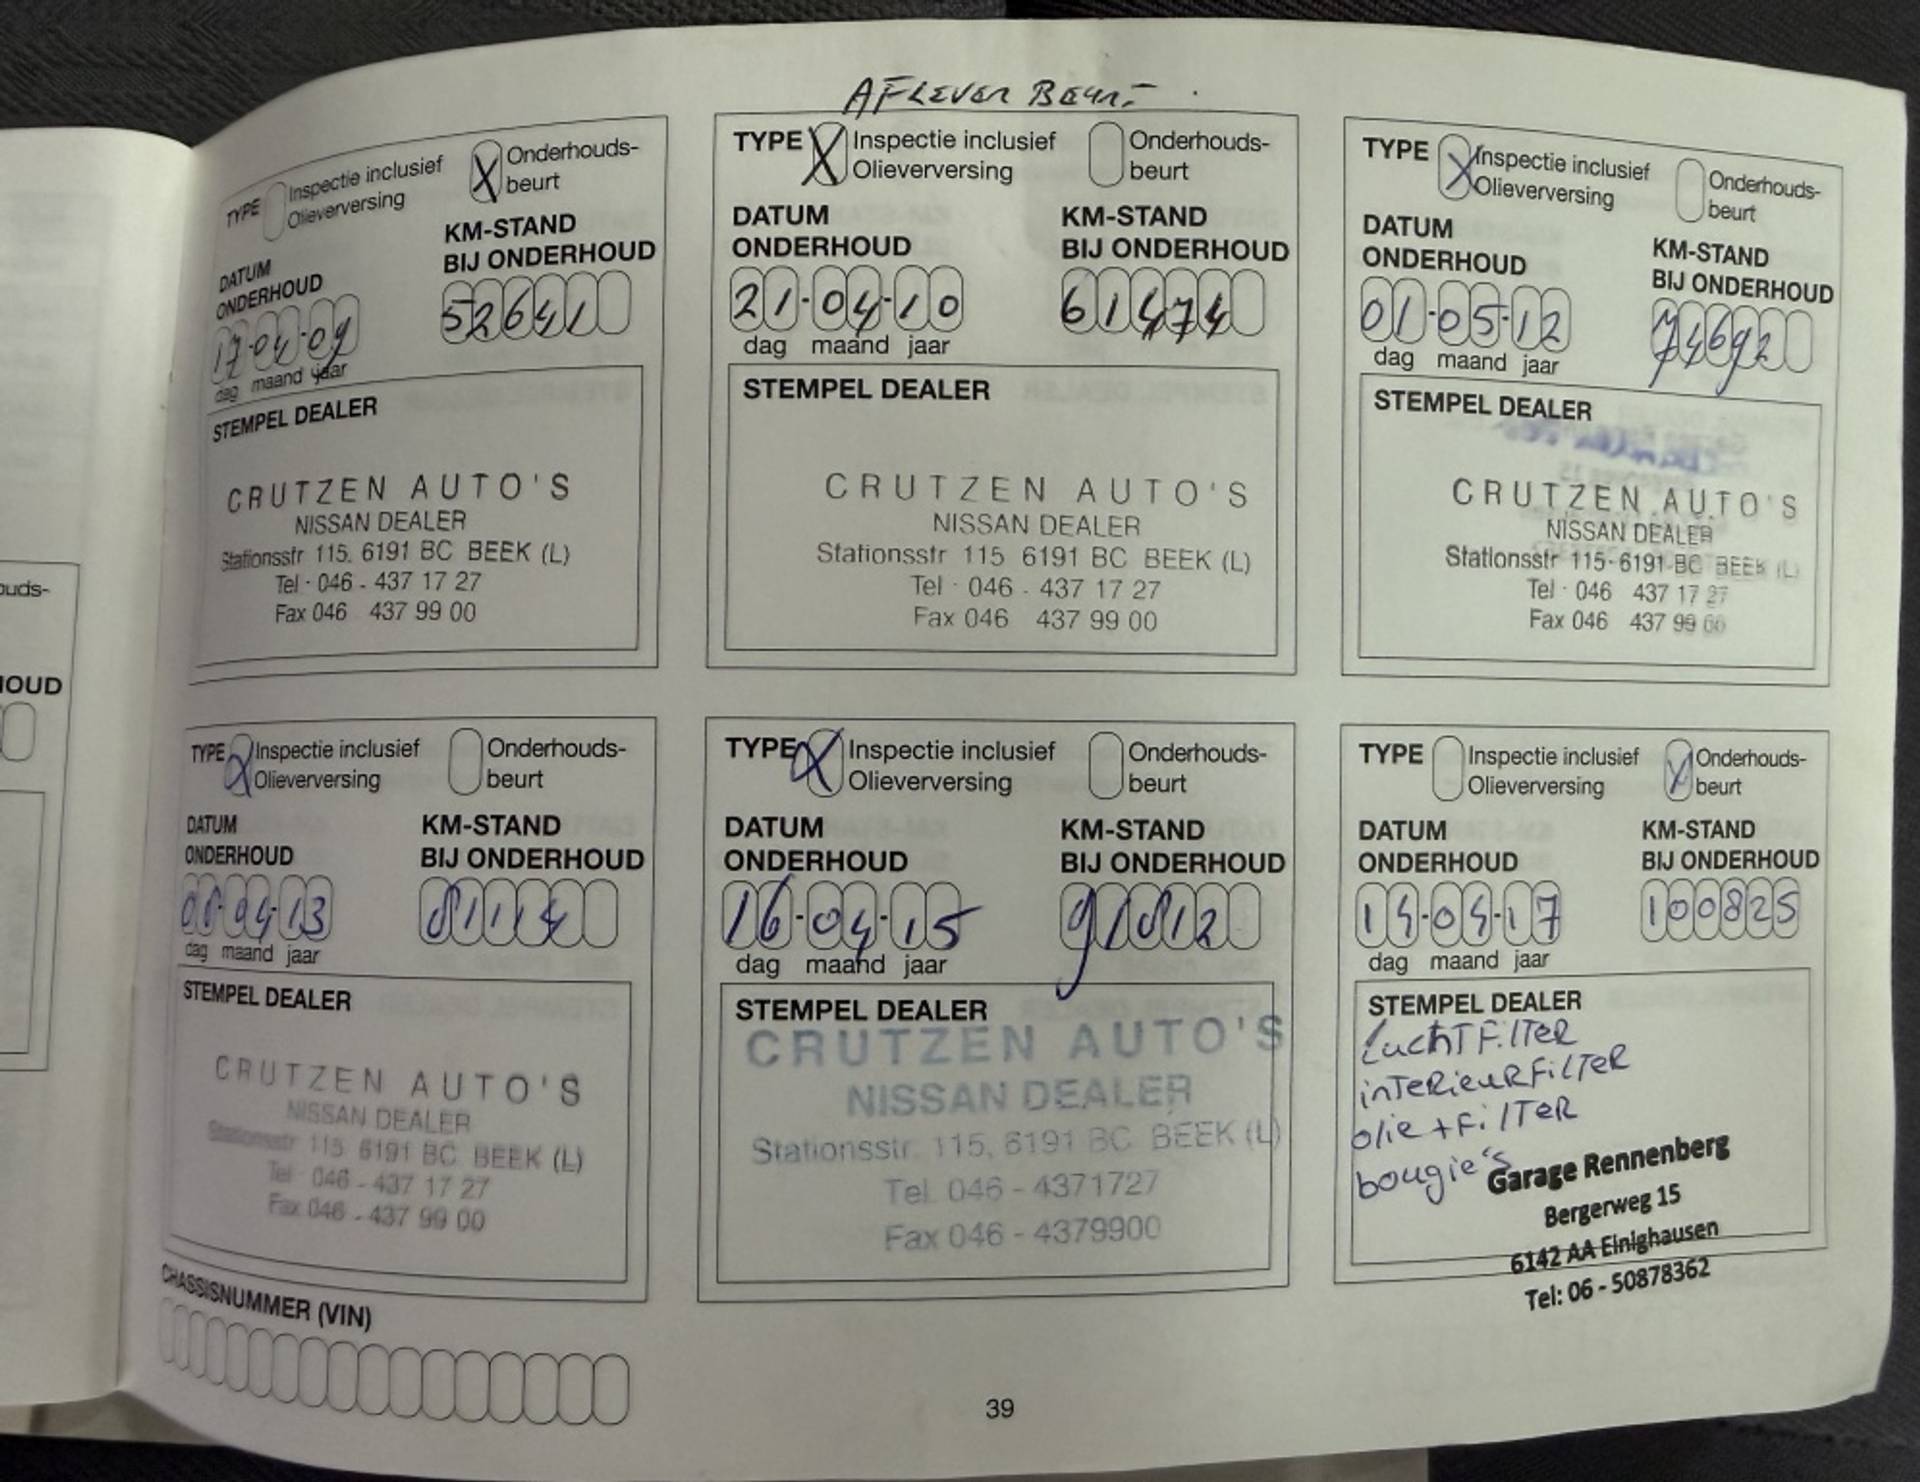 AFLEVER BEURT
TYPE Inspectie inclusief Olieverversing X Onderhouds-beurt
DATUM ONDERHOUD
17-04-09
dag maand jaar
KM-STAND BIJ ONDERHOUD
52641
STEMPEL DEALER
CRUTZEN AUTO'S
NISSAN DEALER
Stationsstr 115, 6191 BC BEEK (L)
Tel · 046 - 437 17 27
Fax 046 437 99 00
TYPE X Inspectie inclusief Olieverversing Onderhouds-beurt
DATUM ONDERHOUD
21-04-10
dag maand jaar
KM-STAND BIJ ONDERHOUD
61474
STEMPEL DEALER
CRUTZEN AUTO'S
NISSAN DEALER
Stationsstr 115 6191 BC BEEK (L)
Tel · 046 - 437 17 27
Fax 046 437 99 00
TYPE X Inspectie inclusief Olieverversing Onderhouds-beurt
DATUM ONDERHOUD
01-05-12
dag maand jaar
KM-STAND BIJ ONDERHOUD
74692
STEMPEL DEALER
CRUTZEN AUTO'S
NISSAN DEALER
Stationsstr 115-6191 BC BEEK (L)
Tel · 046 437 17 27
Fax 046 437 99 00
TYPE X Inspectie inclusief Olieverversing Onderhouds-beurt
DATUM ONDERHOUD
dag maand jaar
KM-STAND BIJ ONDERHOUD
81114
STEMPEL DEALER
CRUTZEN AUTO'S
NISSAN DEALER
Stationsstr 115 6191 BC BEEK (L)
Tel 046 - 437 17 27
Fax 046 - 437 99 00
TYPE X Inspectie inclusief Olieverversing Onderhouds-beurt
DATUM ONDERHOUD
16-04-15
dag maand jaar
KM-STAND BIJ ONDERHOUD
91812
STEMPEL DEALER
CRUTZEN AUTO'S
NISSAN DEALER
Stationsstr. 115, 6191 BC BEEK (L)
Tel. 046 - 4371727
Fax 046 - 4379900
TYPE Inspectie inclusief Olieverversing X Onderhouds-beurt
DATUM ONDERHOUD
14-04-17
dag maand jaar
KM-STAND BIJ ONDERHOUD
100825
STEMPEL DEALER
LuchTFilTeR
inTeRieuRFilTeR
olie+FilTeR
bougie's
Garage Rennenberg
Bergerweg 15
6142 AA Einighausen
Tel: 06 - 50878362
CHASSISNUMMER (VIN)
39